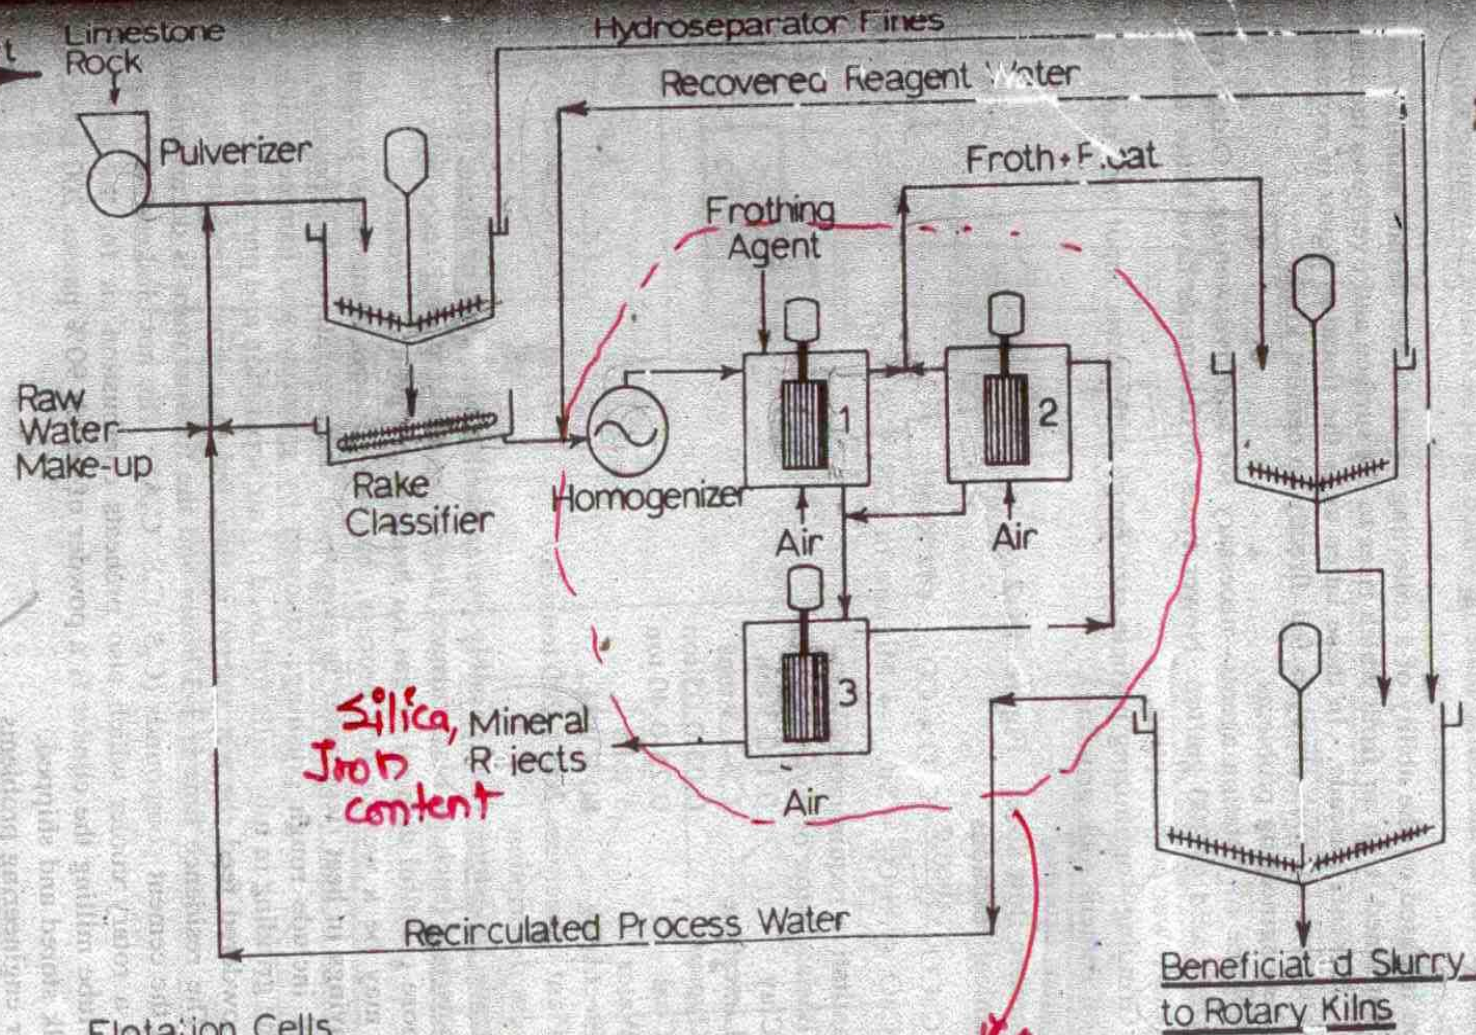 t
Limestone
Rock
Hydroseparator Fines
Recovered Reagent Water
Pulverizer
Froth+Float
Frothing
Agent
1
2
Raw
Water
Make-up
Rake
Classifier
Homogenizer
Air
Air
3
Silica,
Iron
content
Mineral
R jects
Air
Recirculated Process Water
Beneficiat d Slurry
to Rotary Kilns
Flotation Cells